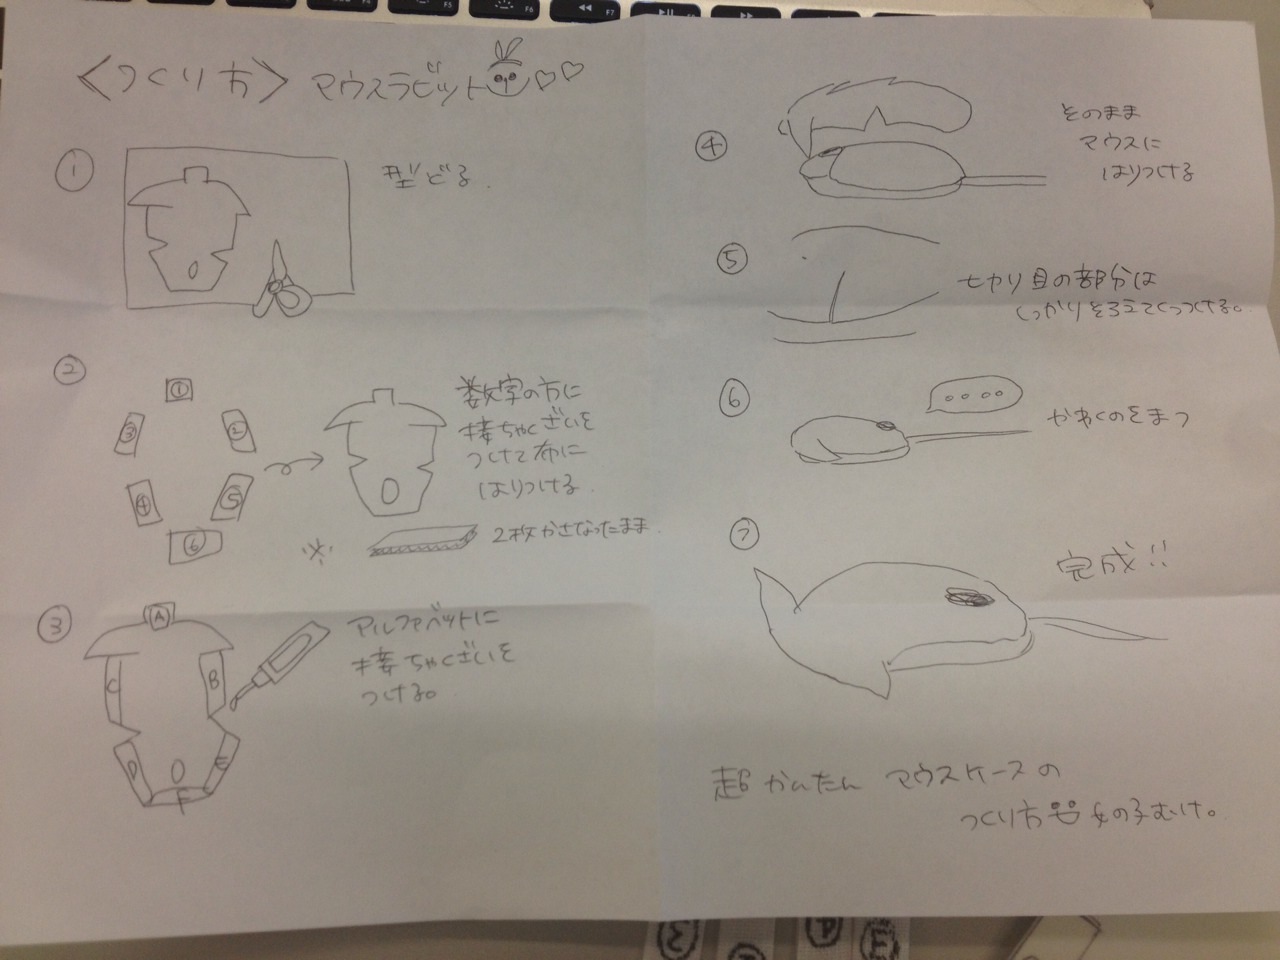 F5
F6
F7
<つくり方> マウスラビット♡♡
① 型どる.
②
①
③
②
④
⑤
⑥
数字の方に
接ちゃくざいを
つけて布に
はりつける.
※ 2枚かさなったまま.
③
A
C
B
D
E
F
アルファベットに
接ちゃくざいを
つける。
④
そのまま
マウスに
はりつける
⑤
切り目の部分は
しっかりそろえてくっつける。
⑥ かわくのをまつ
⑦
完成!!
超かんたん マウスケースの
つくり方 女の子むけ。